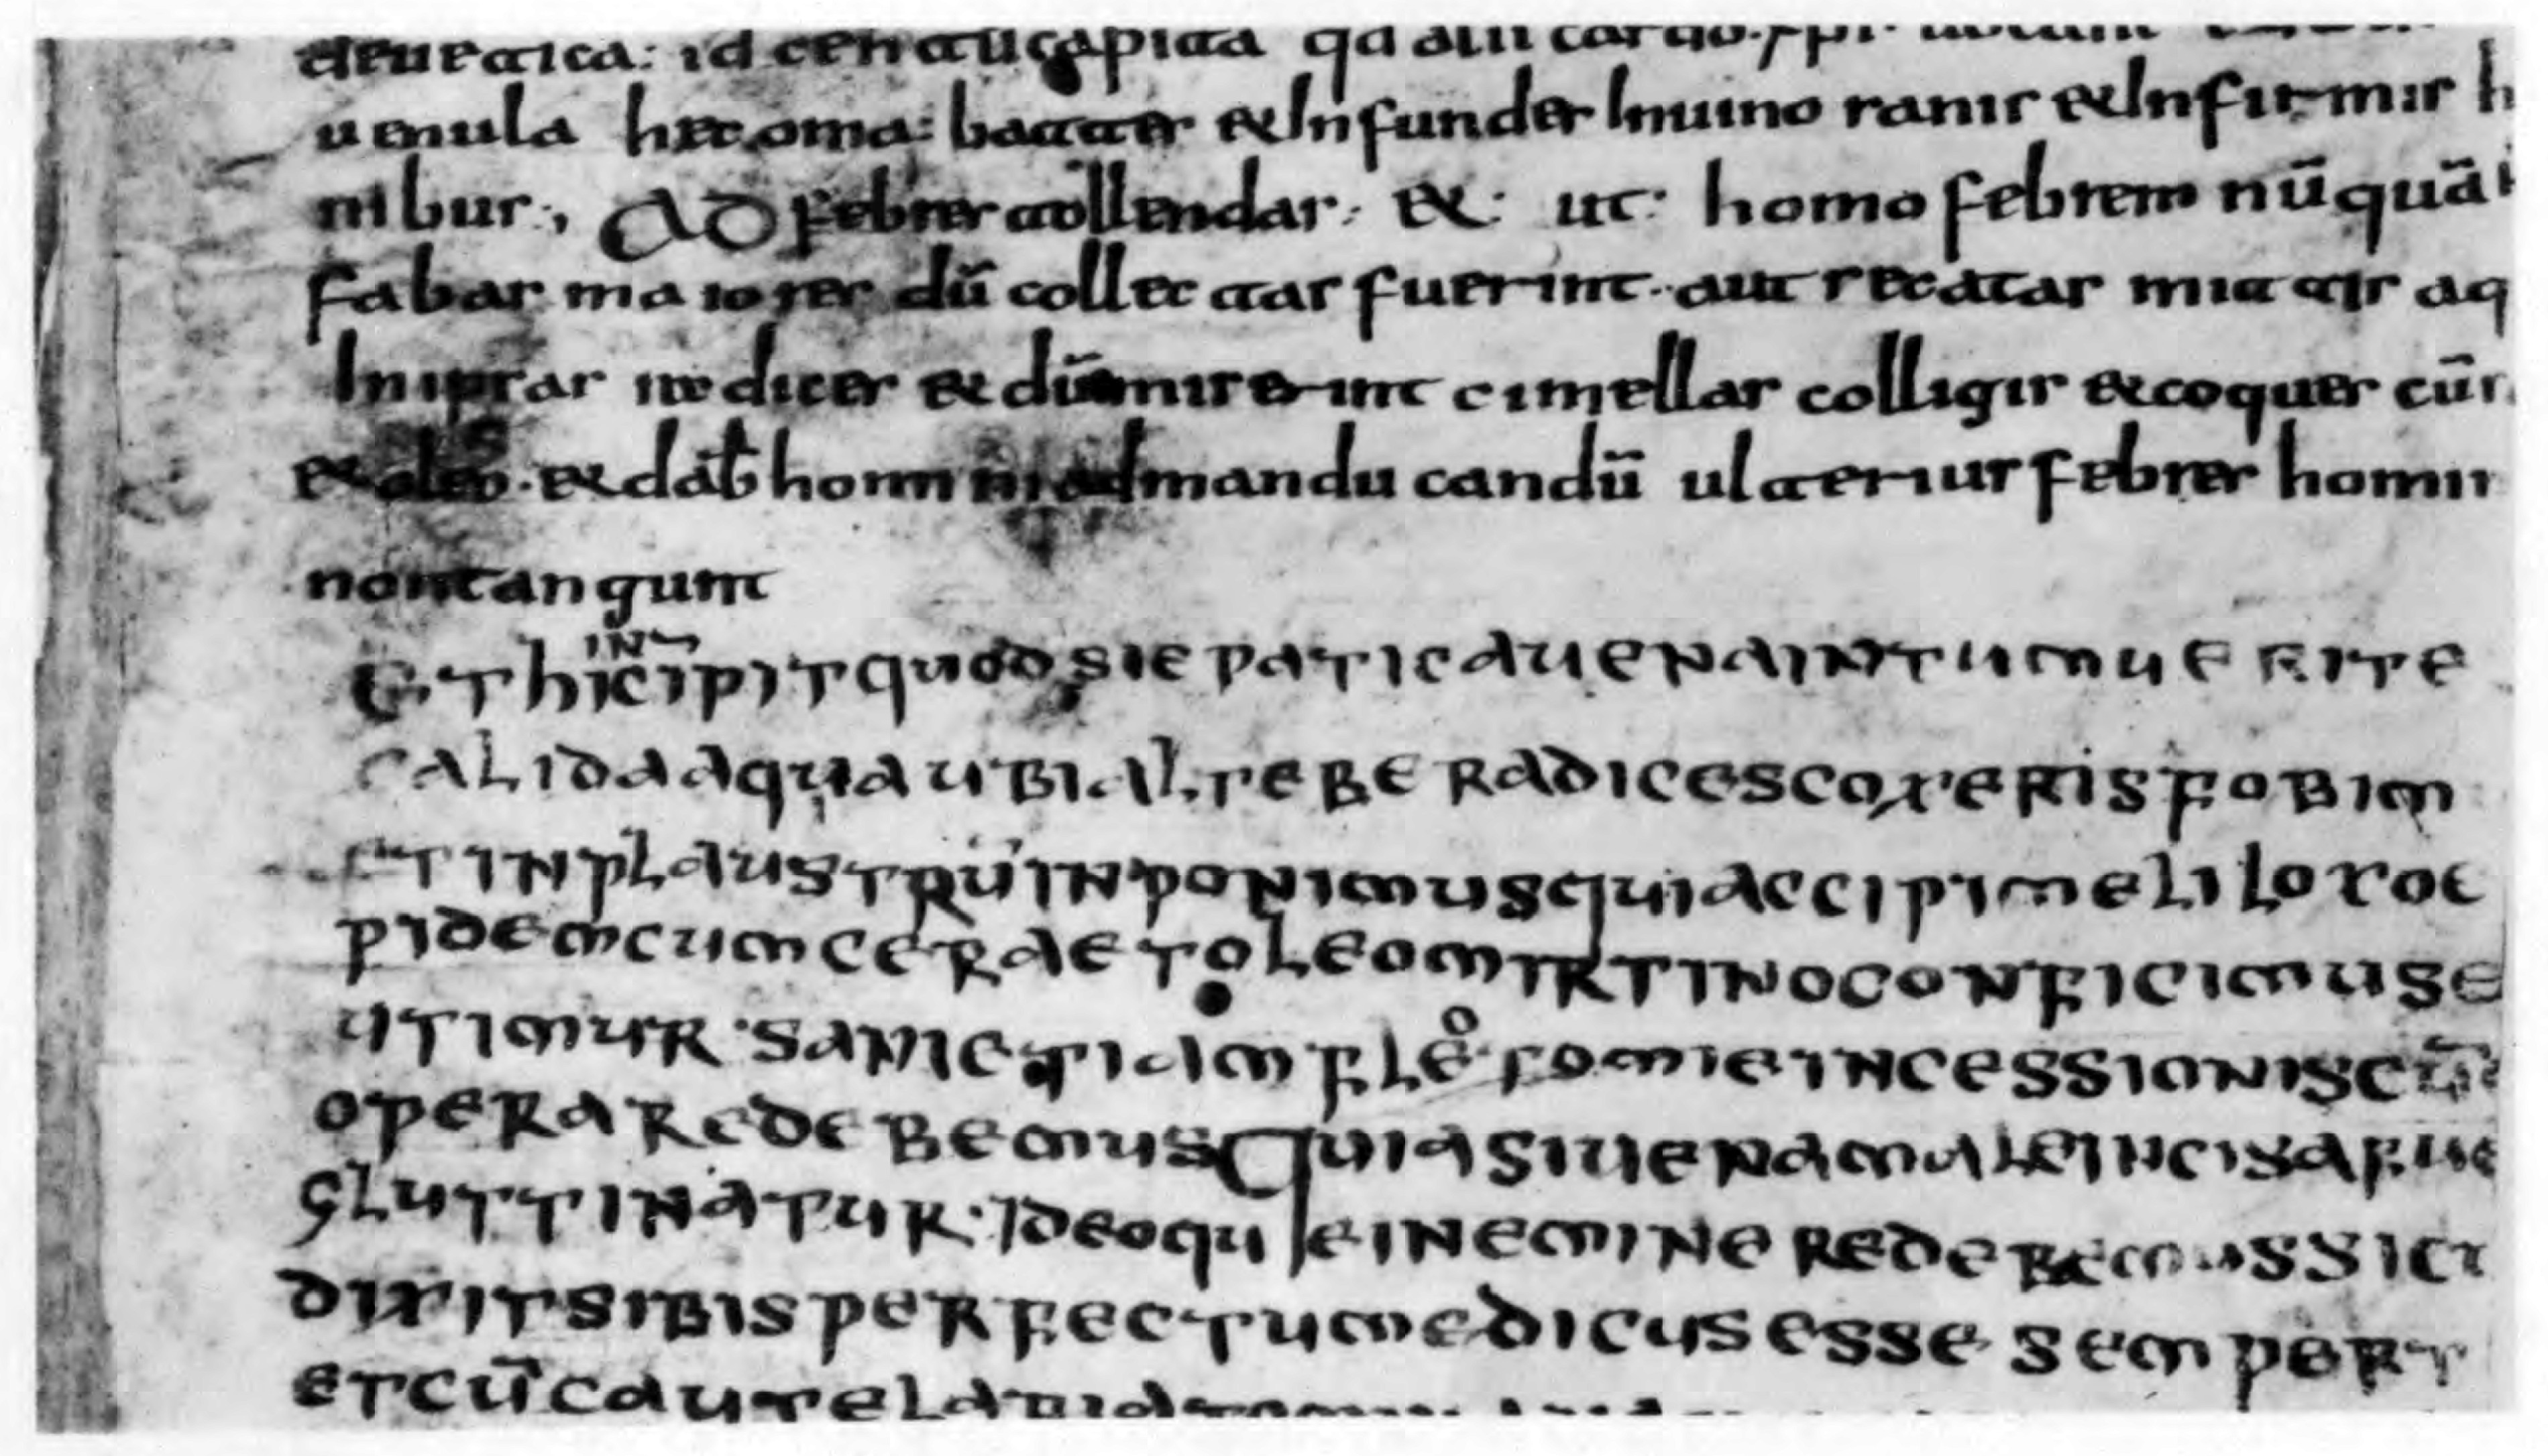 uenula hec oma: battes & Infundes Inuino sanis & Infirmis h
nibus:, AD febres tollendas: &: ut: homo febrem nū quā
fabas maiores dū collectas fuerint. aut secatas mittis aq
In ipsas medices & dū miserint cimellas colligis & coques cū
& oleo. & dab homini ad manducandū ulterius febres homin
non tangunt
ET hINCIPIT quod SI EPATICA UENA INTUMUERIT E
CALIDA AQUA UBI ALTEBE RADICES COXERIS FOBIM
ET IN PLAUSTRŪ INPONIMUS QUI ACCIPI MELILOTO E
PIDEM CUM CERA ET OLEO MIRTINO CONFICIMUS E
UTIMUR. SANIE TIAM FLEOTOMIE INCESSIONIS CŪ
OPERARE DEBEMUS QUIA SI UENA MALE INCISA FUE
GLUTTINATUR. IDEOQUE INEMINE REDEBEMUS SIC
DIXIT SIBIS PERFECTU MEDICUS ESSE SEMPER T
ET CŪ CAUTELA